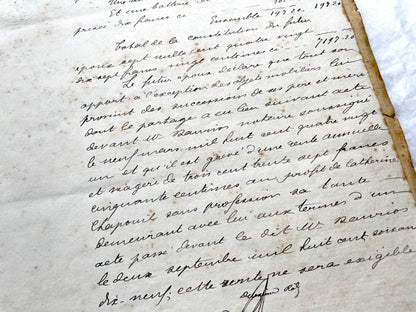 Et une batterie
prisée dix francs ci
Ensemble 197.20. 197.20.
Total de la constitution du futur
époux sept mille cent quatre vingt
dix sept francs vingt centimes ci 7197.20
Le futur époux déclare que tout son
apport à l'exception des objets mobiliers lui
provient des successions de ses père et mère
dont le partage a eu lieu suivant acte
devant Me notaire soussigné
le neuf mars mil huit cent quatre vingt
un et qu'il est grevé d'une rente annuelle
et viagère de trois cent trente sept francs
cinquante centimes au profit de Catherine
Chapouit sans profession sa tante
demeurant avec lui aux termes d'un
acte passé devant le dit Me
le deux septembre mil huit cent soixante
dix-neuf; cette rente ne sera exigible